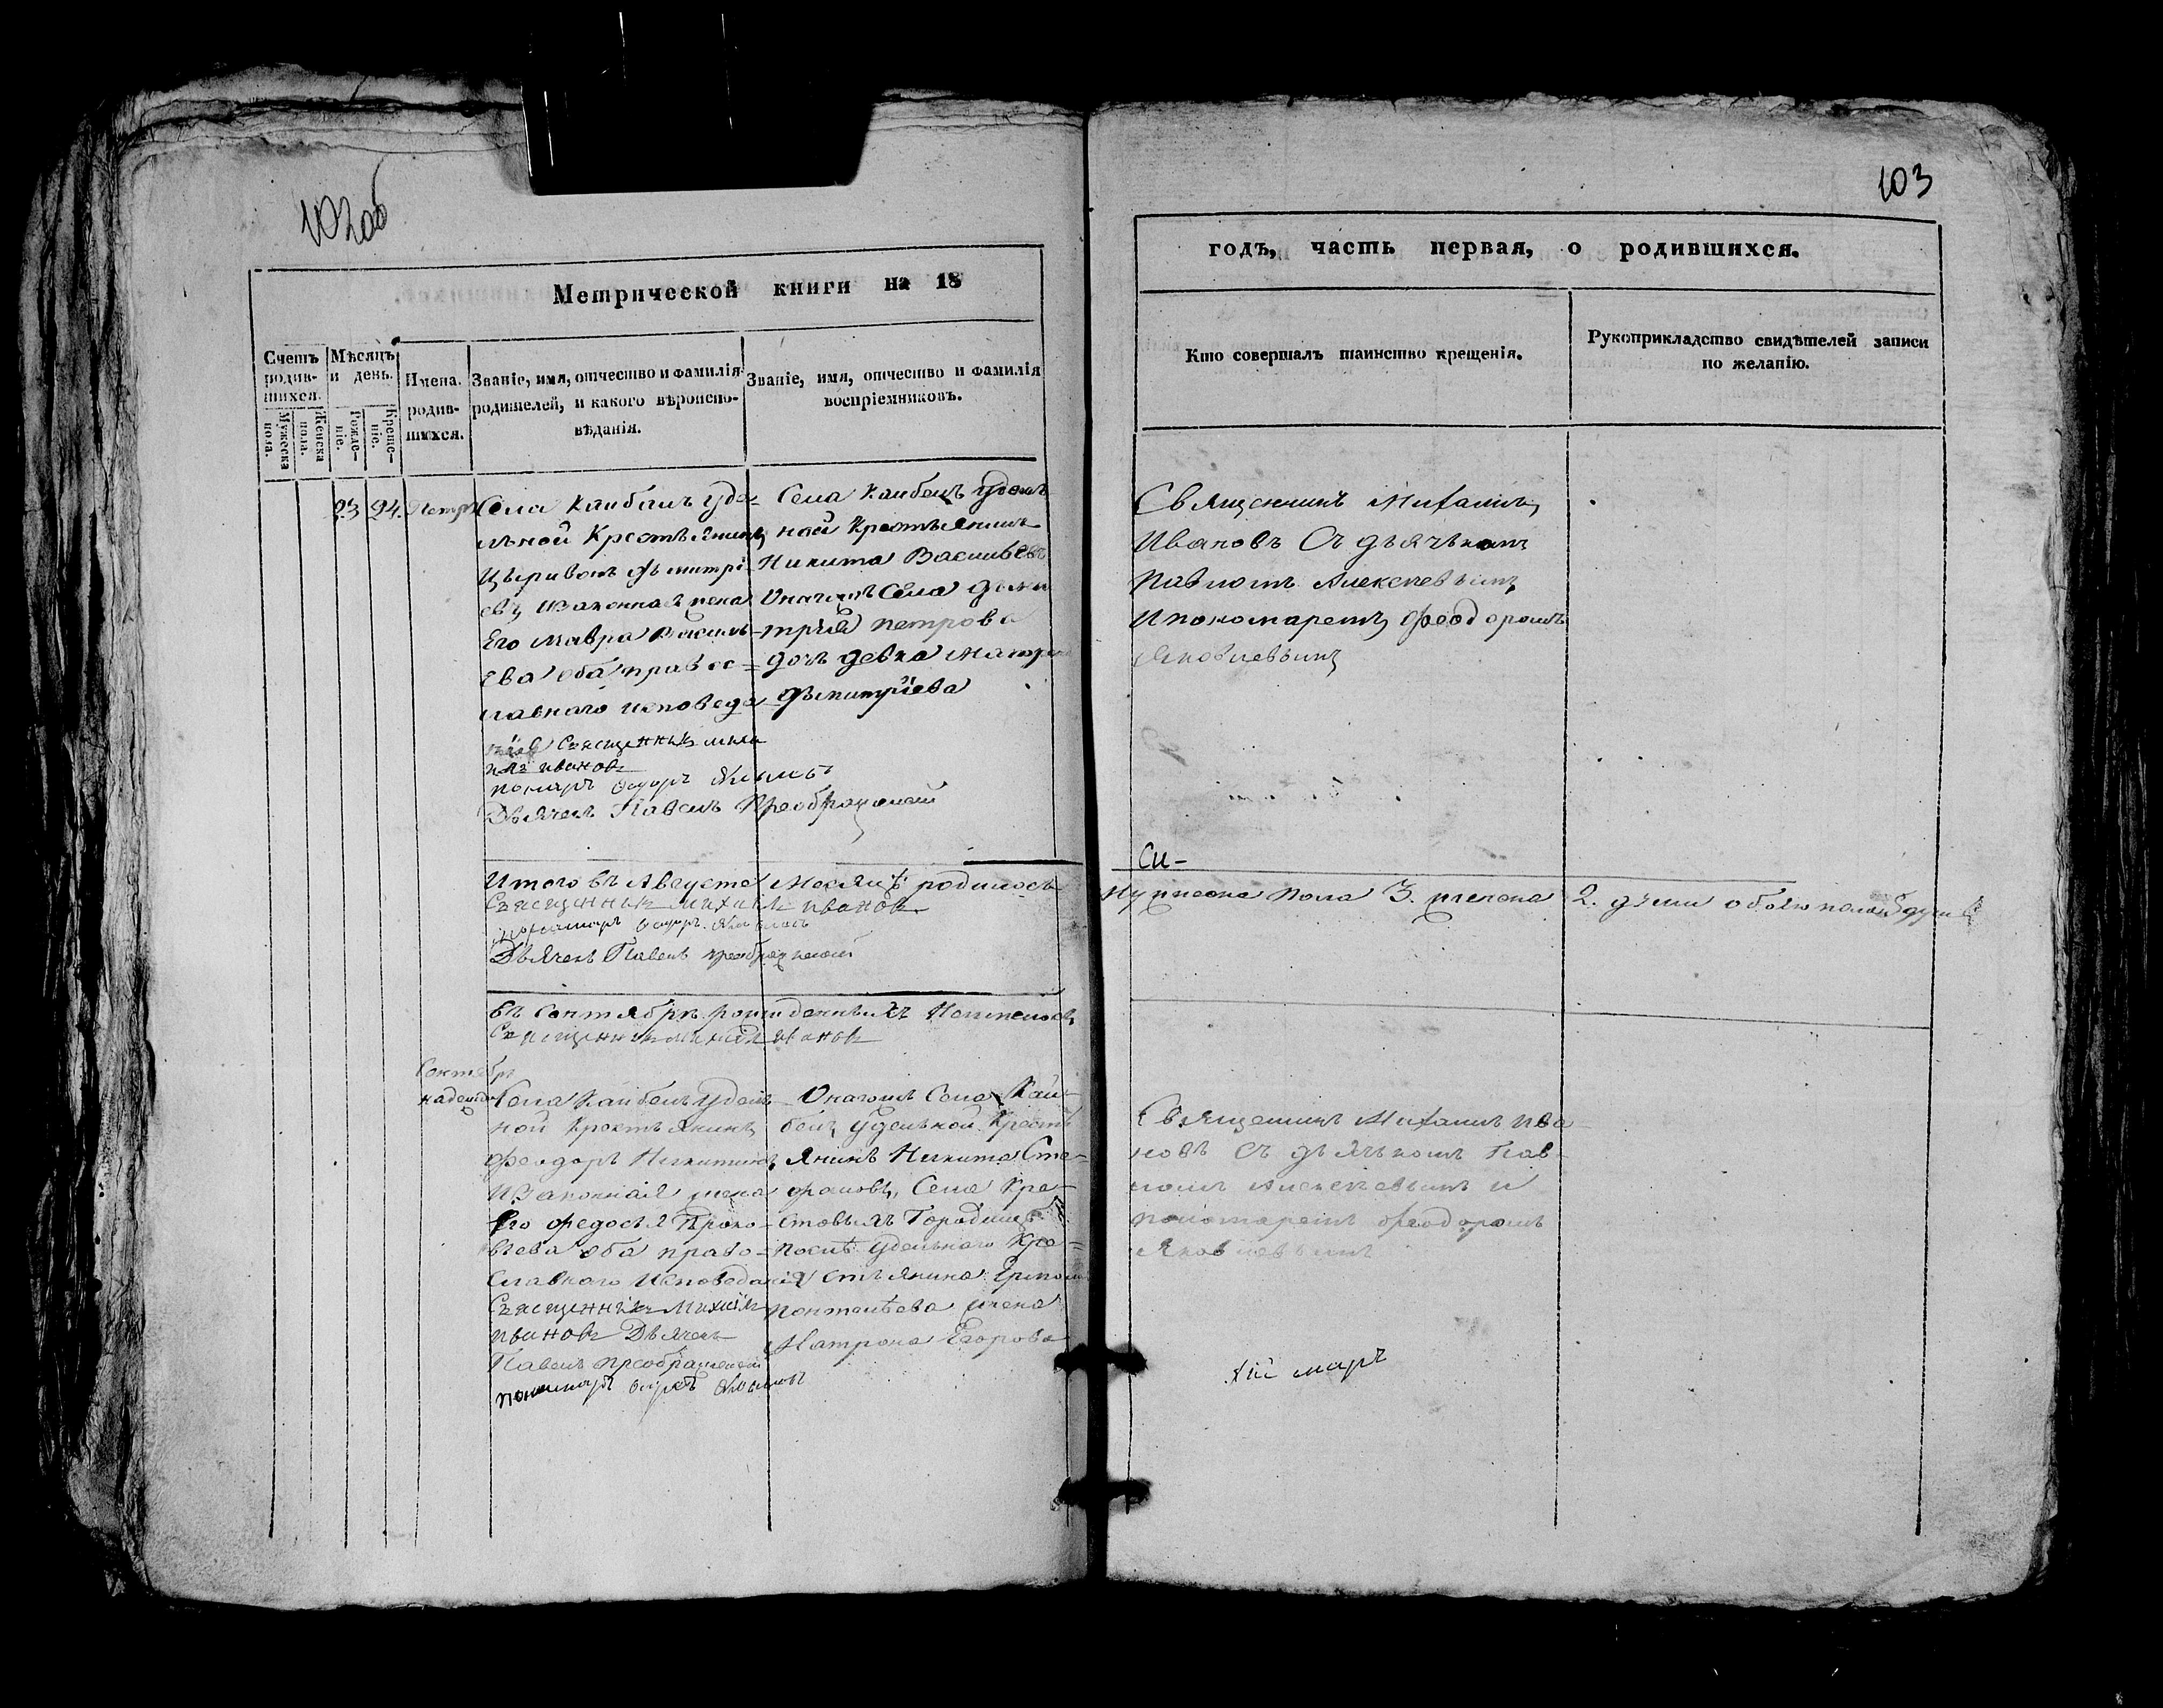 102об
103
Метрической книги на 18
годъ, часть первая, о родившихся.
Счетъ родив-шихся.
Мужеска пола.
Женска пола.
Мѣсяцъ и день.
Рожде-ніе.
Креще-ніе.
Имена. родив-шихся.
Званіе, имя, отчество и фамилія
родителей, и какого вѣроиспо-
вѣданія.
Званіе, имя, отчество и фамилія
воспріемниковъ.
Кто совершалъ таинство крещенія.
Рукоприкладство свидѣтелей записи
по желанію.
23 24. Петръ
Села Каибелъ уде-
льной Крестьянинъ
Дьмитрі-
евъ, Изаконная жена
Его Мавра Василь-
ева оба правос-
лавнаго исповеда
нія Священникъ миха
илъ ивановъ
Дьячекъ Павелъ Преображенской
Села Каибелъ удель
ной Крестьянинъ
Никита Васильевъ
Оначежъ Села Дьми
трия петрова
дочь девка Матрена
Дьмитріева
Священникъ Михаилъ
Ивановъ Съ дьячькомъ
Павломъ Алексеевымъ
Ипономаремъ Феодоромъ
Яковлевымъ
Итого въ Августе Месяцѣ родилось
Священникъ михаилъ ивановъ
Дьячекъ Павелъ преображенской
Мужеска пола 3. женска 2. душъ обоего пола 5 душъ
въ Сентябрѣ рожденныхъ Неимелось
Священникъ михаилъ ивановъ
Октябрь
надежда
Села Каибелъ удель
ной Крестьянинъ
Феодоръ Никитинъ
Изаконная жена
Его Федосья Проко-
вьева оба право-
славнаго Исповеданія
Священникъ Михаилъ
ивановъ Дьячекъ
Павелъ преображенской
Оначежъ Села Каи-
белъ удельной Кресть
янинъ Никита Сте-
фановъ, Села Кре-
стовыхъ Городищъ
после удельнаго Кре-
стьянина
жена
Матрона Егорова
Священникъ Михаилъ Ива-
новъ Съ дьячькомъ Пав-
ломъ Алексеевымъ и
пономаремъ Феодоромъ
Яковлевымъ